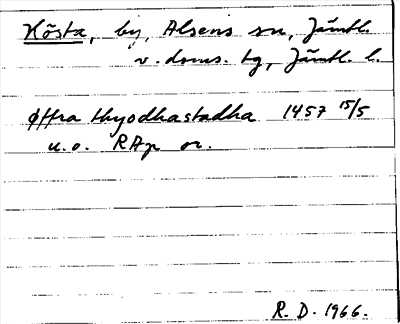 Hösta, by, Alsens sn, Jämtl.
v. doms. tg, Jämtl. l.
øffra thyodhastadha 1457 15/5
u.o. RAp or.
R. D. 1966.